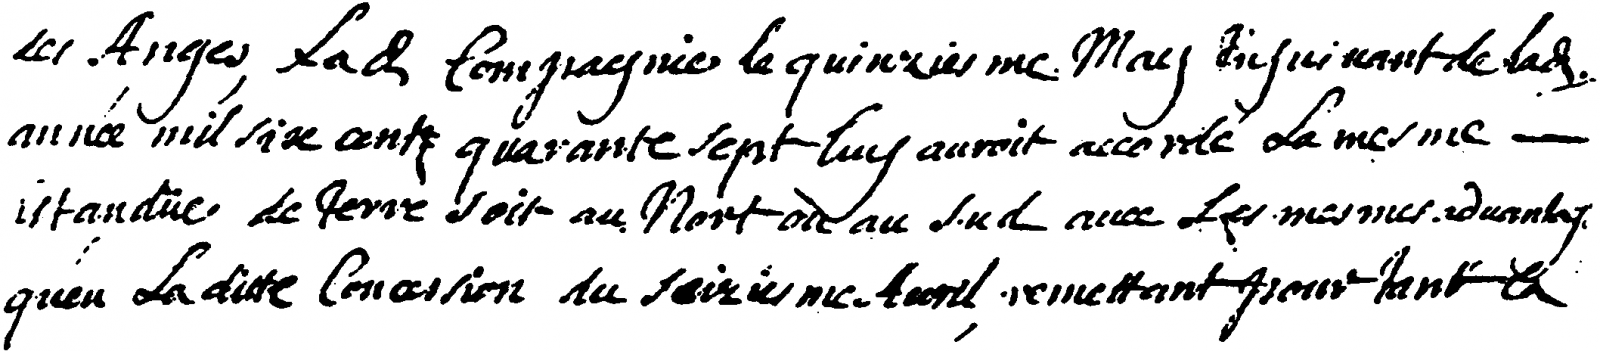 des Anges, Lad Compagnie le quinziesme May Ensuivant de lad.
année mil six centz quarante sept luy auroit accordé La mesme —
istandüe de terre soit au Nort où au sud avec Les mesmes advantag.
qu'en Laditte Concession du seiziesme Avril, remettant pour tant la